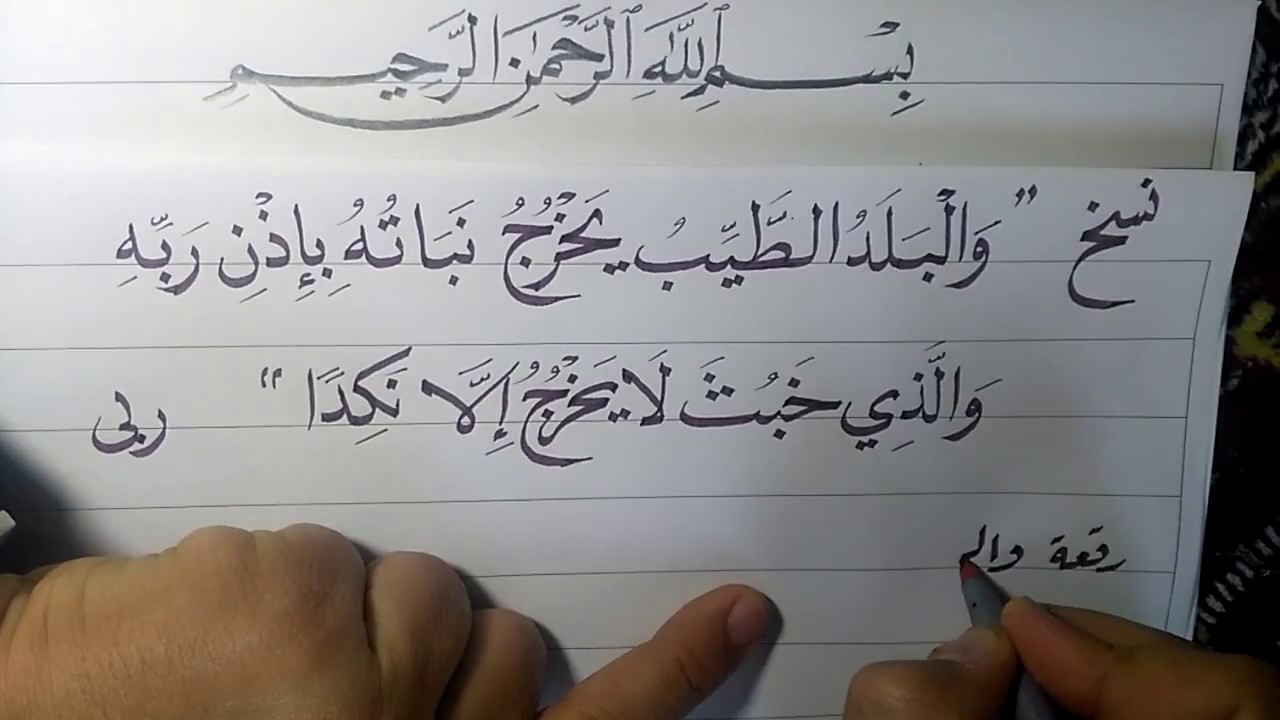 بِسْمِ ٱللَّهِ ٱلرَّحْمَٰنِ ٱلرَّحِيمِ
نسخ " وَالْبَلَدُ الطَّيِّبُ يَخْرُجُ نَبَاتُهُ بِإِذْنِ رَبِّهِ
وَالَّذِي خَبُثَ لَا يَخْرُجُ إِلَّا نَكِدًا "
رقعة والب